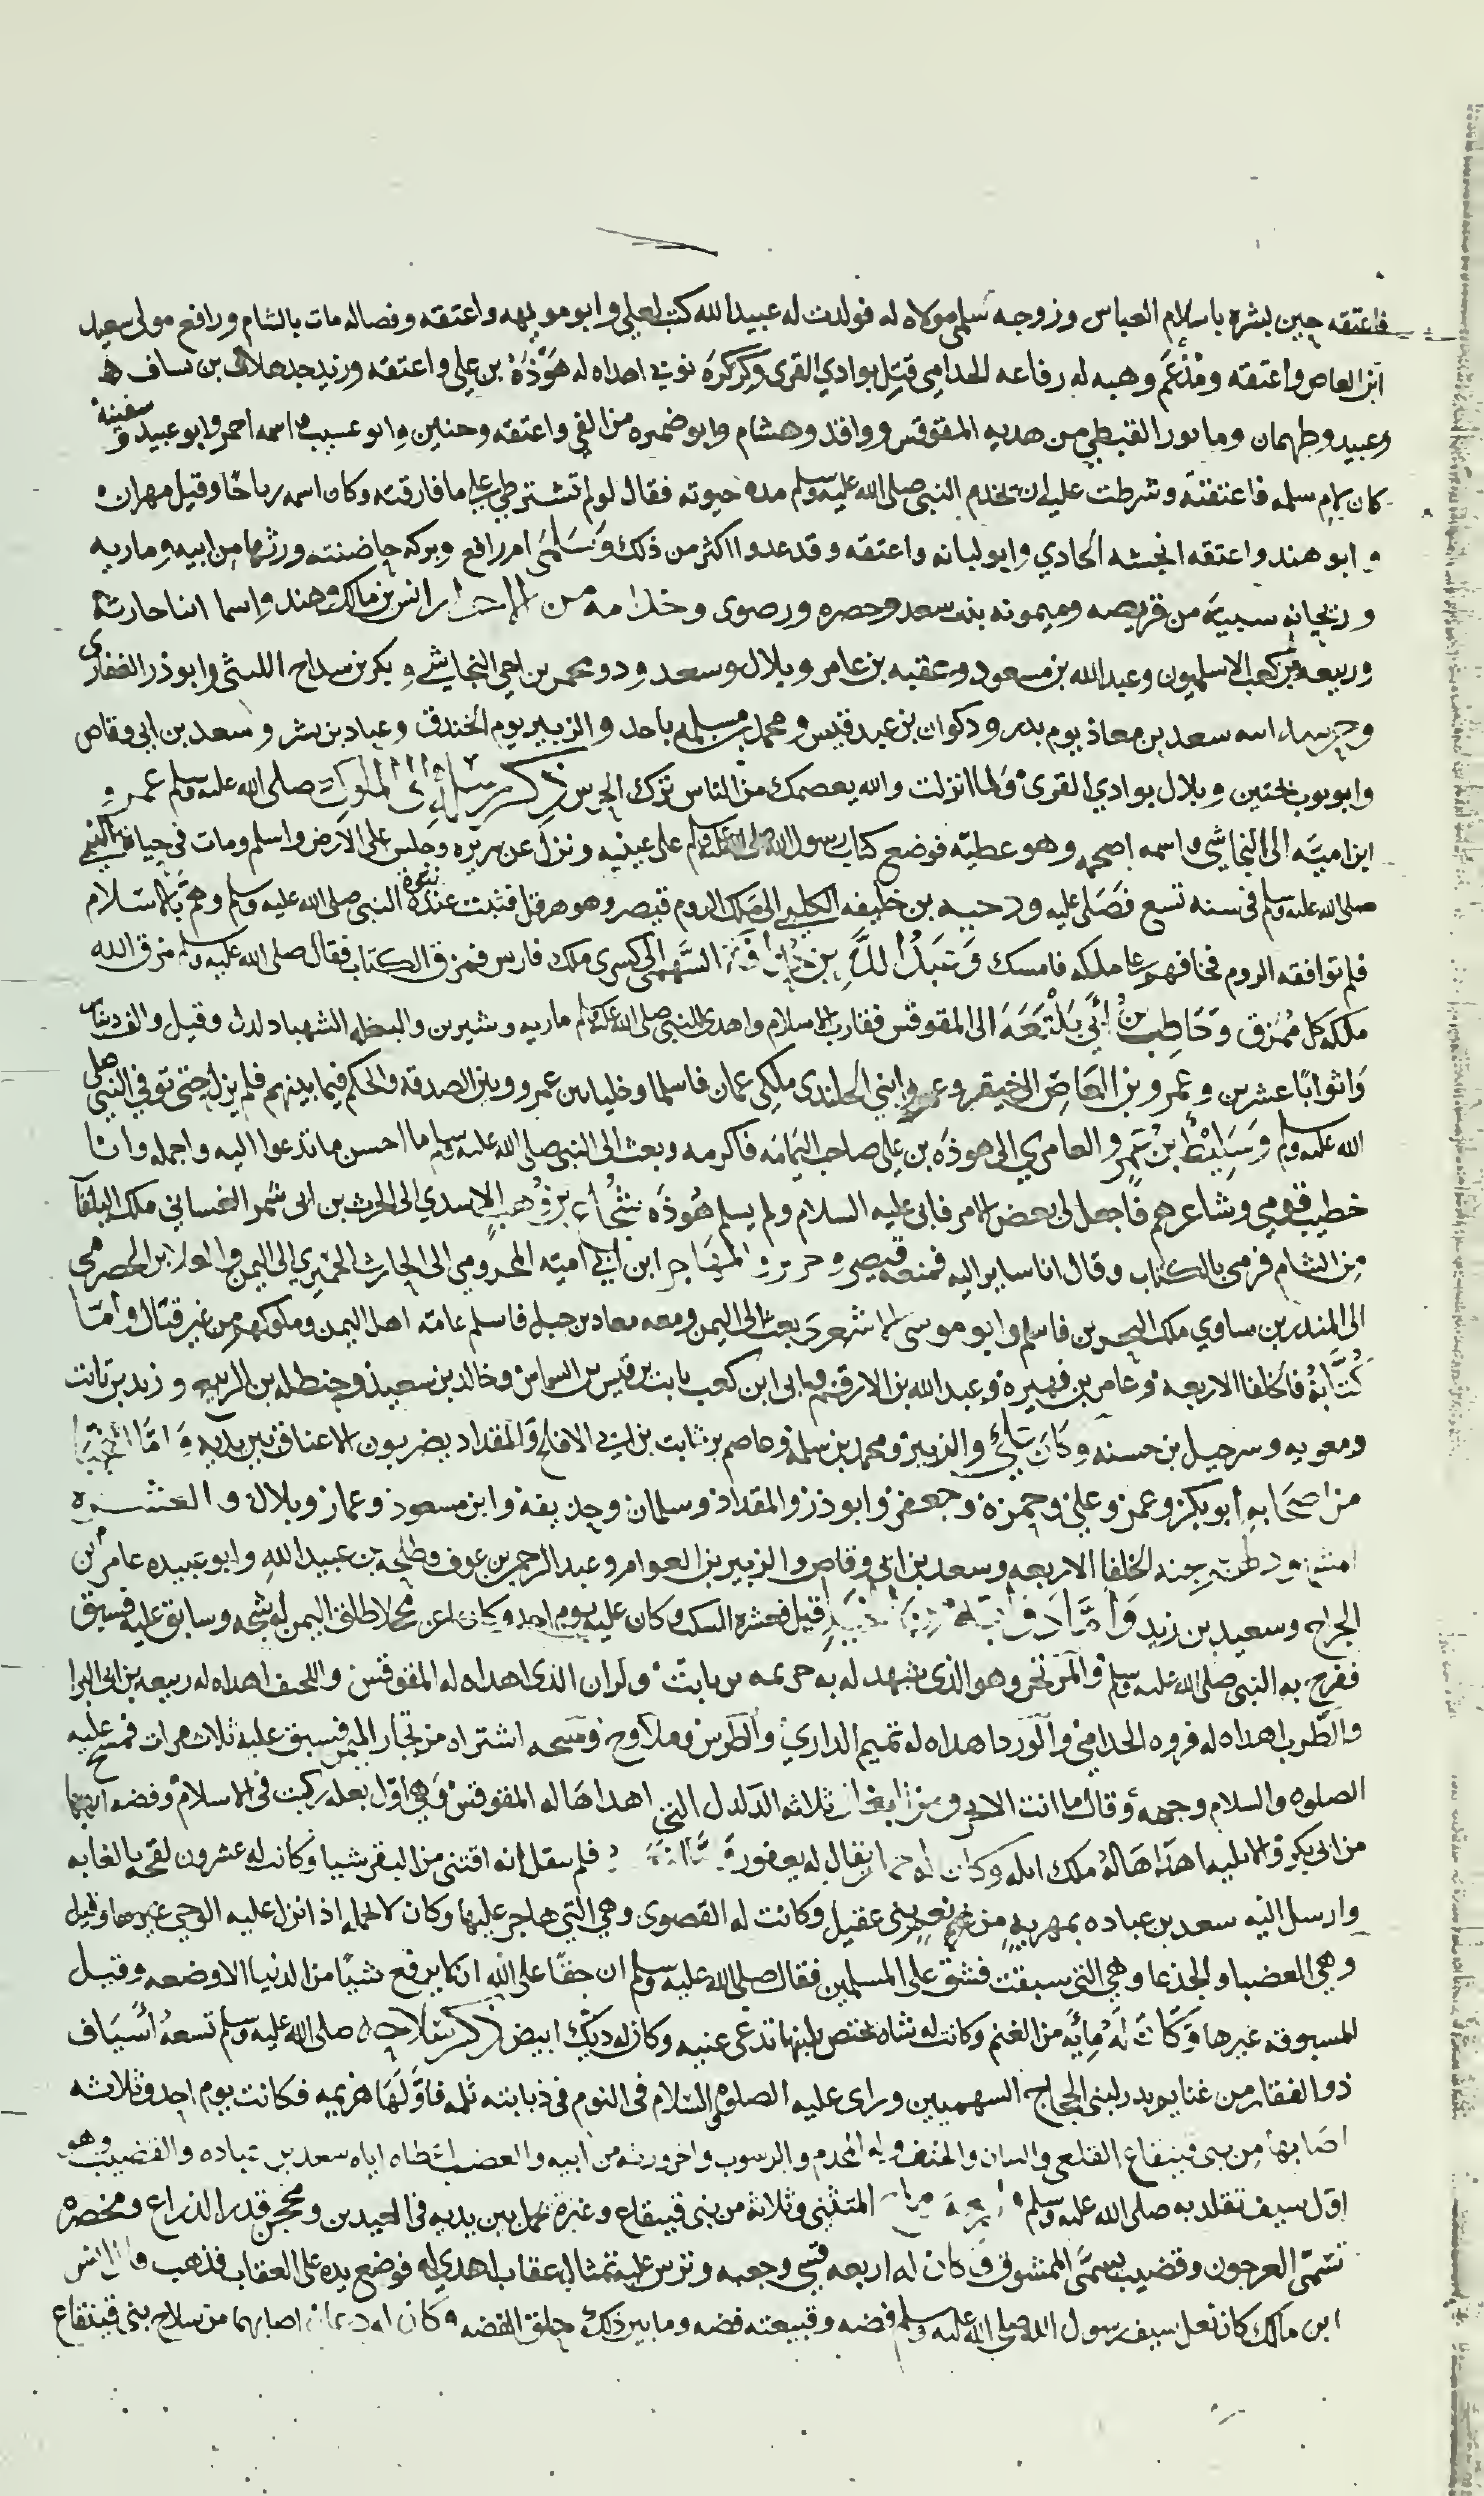 فاعتقه حين بشره باسلام العباس وزوجه سلمى مولاه له فولدت له عبيد الله كتب لعلي وابو مويهبه واعتقه وفضاله مات بالشام ورافع مولى سعيد
ابن العاص واعتقه ومدعم وهبه له رفاعه الجدامي قتل بوادي القرى وكركرة نوبي اهداه له هوذة بن علي واعتقه وزيد جد هلال بن يساف
وعبيد وطهمان ومابور القبطي من هديه المقوقس وواقد وهشام وابو ضميره من الفي واعتقه وحنين وابو عسيب واسمه احمر وابو عبيد وسفينة
كان لام سلمه فاعتقته وشرطت عليه ان يخدم النبي صلى الله عليه وسلم مده حيوته فقال لو لم تشترطي علي ما فارقته وكان اسمه رباحا وقيل مهران
وابو هند واعتقه انجشه الحادي وابو لبابه واعتقه وقد عدوا اكثر من ذلك وسلمى ام رافع وبركه حاضنته ورثها من ابيه وماريه
وريحانه سبية من قريضه وميمونه بنت سعد وخضره ورضوى وخدامه من الاحرار انس بن مالك وهند واسما ابنا حارثة
وربيعه بن كعب الاسلميون وعبد الله بن مسعود وعقبه بن عامر وبلال وسعد وذو مخمر بن اخي النجاشي وبكر بن سداح الليثي وابو ذر الغفاري
وحرسه سعد بن معاذ يوم بدر ودكوان بن عبد قيس ومحمد بن مسلمه باحد والزبير يوم الخندق وعباد بن بشر وسعد بن ابي وقاص
وابو يوب بخنين وبلال بوادي القرى ولما انزلت والله يعصمك من الناس ترك الحرس ذكر رسله الى الملوك صلى الله عليه وسلم عمرو
ابن اميه الى النجاشي واسمه اصحمه وهو عطية فوضع كتاب رسول الله صلى الله عليه وسلم على عينيه ونزل عن سريره وجلس على الارض واسلم ومات في حياة النبي
صلى الله عليه وسلم في سنه تسع فصلى عليه ودحيه بن خليفه الكلبي الى ملك الروم قيصر وهو هرقل فثبت عنده نبوة النبي صلى الله عليه وسلم وهم بالاسلام
فلم توافقه الروم فخافهم على ملكه فامسك وعبد الله بن حذافة السهمي الى كسرى ملك فارس فمزق الكتاب فقال صلى الله عليه وسلم مزق الله
ملكه كل ممزق وحاطب بن ابي بلتعه الى المقوقس فقارب الاسلام واهدى للنبي صلى الله عليه وسلم ماريه وشيرين والبغله الشهبا دلدل وقيل والف دينار
واثوابا عشرين وعمرو بن العاص الى جيفر وعبد ابني الجلندي ملكي عمان فاسلما وخليا بين عمرو وبين الصدقه والحكم فيما بينهم فلم يزل حتى توفي النبي صلى
الله عليه وسلم وسليط بن عمرو العامري الى هوذه بن علي صاحب اليمامه فاكرمه وبعث الى النبي صلى الله عليه وسلم ما احسن ما تدعوا اليه واجمله وانا
خطيب قومي وشاعرهم فاجعل لي بعض الامر فابى عليه السلام ولم يسلم هوذه شجاع بن وهب الاسدي الى الحرث بن ابى شمر الغساني ملك البلقا
من الشام فرمى بالكتاب وقال انا ساير اليه فمنعه قيصر والمهاجر ابن ابي اميه المخزومي الى الحارث الحميري الى اليمن والعلا بن الحضرمي
الى المنذر بن ساوي ملك البحرين فاسلم وابو موسى الاشعري بعثه الى اليمن ومعه معاذ بن جبل فاسلم عامه اهل اليمن وملوكهم من غير قتال واما
كتابه فالخلفا الاربعه وعامر بن فهيره وعبد الله بن الارقم وابى ابن كعب ثابت بن قيس بن الشماس وخالد بن سعيد وحنظله بن الربيع وزيد بن ثابت
ومعويه وسرحبيل بن حسنه وكان علي والزبير ومحمد بن مسلمه وعاصم بن ثابت بن ابي الافلح والمقداد يضربون الاعناق بين يديه واما النجبا
من اصحابه ابو بكر وعمر وعلي وحمزه وجعفر وابو ذر والمقداد وسلمان وحذيفه وابن مسعود وعمار وبلال والعشره
بالجنه الخلفا الاربعه وسعد بن ابي وقاص والزبير بن العوام وعبد الرحمن بن عوف وطلحه بن عبيد الله وابو عبيده عامر ابن
الجراح وسعيد بن زيد واما دوابه قيل فعشره السكب وكان عليه يوم احد وكان اغر محجلا طلق اليمن لونه وسابق عليه فسبق
ففرح به النبي صلى الله عليه وسلم والمرتجز وهو الذي شهد له به خزيمه بن ثابت ولزاز الذى اهداه له المقوقس واللحيف اهداه له ربيعه بن ابي البرا
والظرب اهداه له فروه الجدامي والورد اهداه له تميم الداري والضرس وملاوح وسبحه اشتراه من تجار اليمن فسبق عليه ثلاث مرات فمسح عليه
الصلوه والسلام وجهه وقال ما انت الا بحر ومن البغال ثلاثه الدلدل التي اهداها له المقوقس وهى اول بغله ركبت في الاسلام وفضه
من ابي بكر والايليه اهداها له ملك ايله وكان له حمار يقال له يعفور فلم ينقل انه اقتني من البقر شيا وكانت له عشرون لقحه بالغابه
وارسل اليه سعد بن عباده بمهريه من نعم بني عقيل وكانت له القصوى وهي التي هاجر عليها وكان لا تحمله اذا انزل عليه الوحي غيرها وقيل
وهي العضبا والجذعا وهي التي سبقت فشق على المسلمين فقال صلى الله عليه وسلم ان حقا على الله ان لا يرفع شيئا من الدنيا الا وضعه وقيل
المسبوقه غيرها وكانت له مايه من الغنم وكانت له شاه يختص بلبنها تدعى عنيه وكان له ديك ابيض ذكر سلاحه صلى الله عليه وسلم تسعة اسياف
ذو الفقار من غنا يو بدر لبني الحجاج السهميين وراى عليه الصلوه والسلام في النوم في ذبابته ثلمه فاولها هزيمه فكانت يوم احد وثلاثه
اصابها من بني قينقاع القلعي والبتار والحتف وله المخدم والرسوب واخر ورثه من ابيه والعضب اعطاه اياه سعد بن عباده والقضيب وهو
اول سيف تقلد به صلى الله عليه وسلم المتثني وثلاثه من بني قينقاع وعنزة تحمل بين يديه في العيدين ومحجن قدر الذراع ومخصره
تسمى العرجون وقضيب يسمى الممشوق وكان له اربعه قسي وجعبه وترس عليه تمثال عقاب اهدي له فوضع يده على العقاب فذهب وقال انس
ابن مالك كان نعل سيف رسول الله صلى الله عليه وسلم فضه وقبيعته فضه وما بين ذلك حلق الفضه وكان له درعان اصابهما من سلاح بني قينقاع